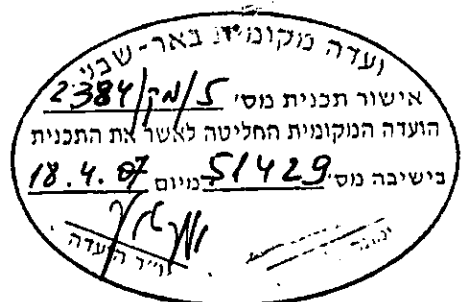 ועדה מקומית באר-שבע
אישור תכנית מס' 5/מק/2384
הועדה המקומית החליטה לאשר את התכנית
בישיבה מס' 51429 מיום 18.4.07
יו"ר הועדה